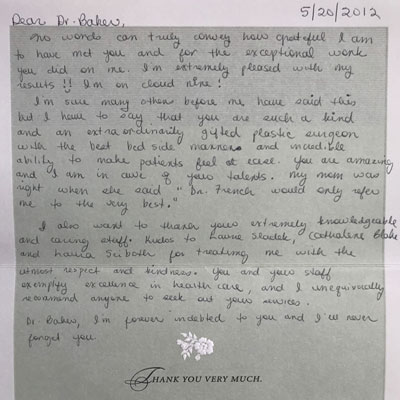 5/20/2012
Dear Dr. Baker,
No words can truly convey how grateful I am
to have met you and for the exceptional work
you did on me. I'm extremely pleased with my
results!! I'm on cloud nine!
I'm sure many others before me have said this
but I have to say that you are such a kind
and an extraordinarily gifted plastic surgeon
with the best bed side manners and incredible
ability to make patients feel at ease. You are amazing
and I am in awe of your talents. My mom was
right when she said "Dr. French would only refer
me to the very best."
I also want to thank your extremely knowledgeable
and caring staff. Kudos to Laurie Sladek, Blake
and Laura for treating me with the
utmost respect and kindness. You and your staff
exemplify excellence in health care, and I unequivocally
recommend anyone to seek out your services.
Dr. Baker, I'm forever indebted to you and I'll never
forget you.
THANK YOU VERY MUCH.